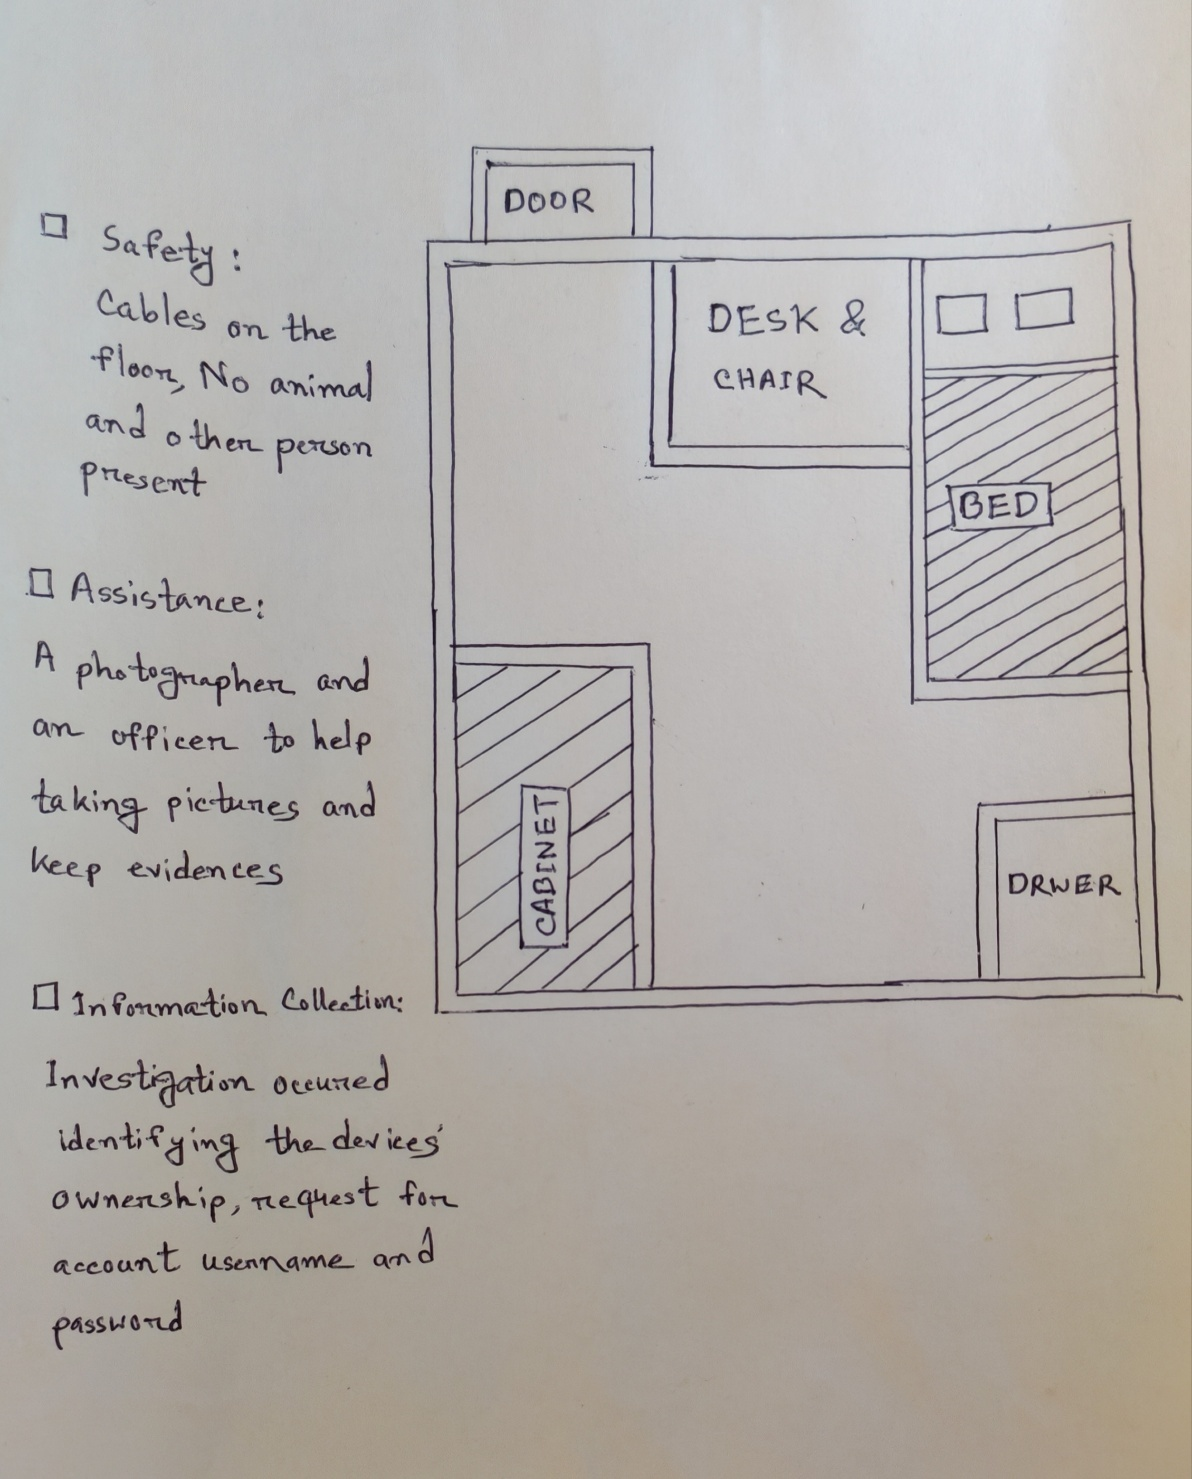 Safety:
Cables on the
floor, No animal
and other person
present
Assistance:
A photographer and
an officer to help
taking pictures and
keep evidences
Information Collection:
Investigation occured
identifying the devices'
ownership, request for
account username and
password
DOOR
DESK &
CHAIR
BED
CABINET
DRWER